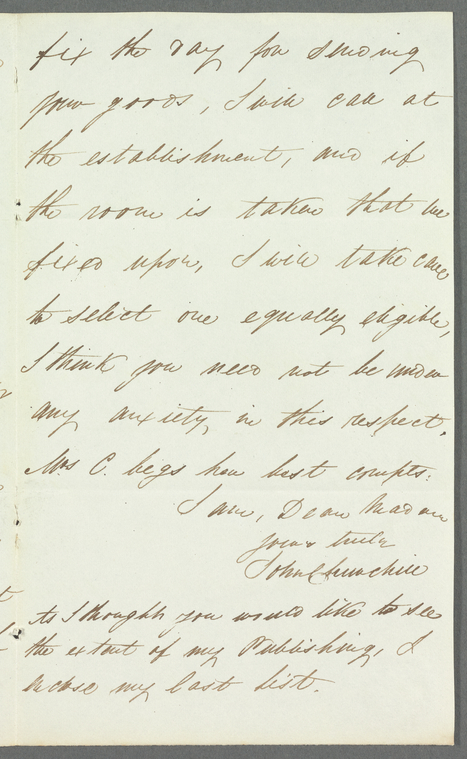 fix the day for sending
your goods, I will call at
the establishment, and if
the room is taken that we
fixed upon, I will take care
to select one equally eligible,
I think you need not be under
any anxiety in this respect.
Mrs C. begs her best compts:
I am, Dear Madam
yours truly
John Churchill
As I thought you would like to see
the extent of my Publishing, I
enclose my last list.